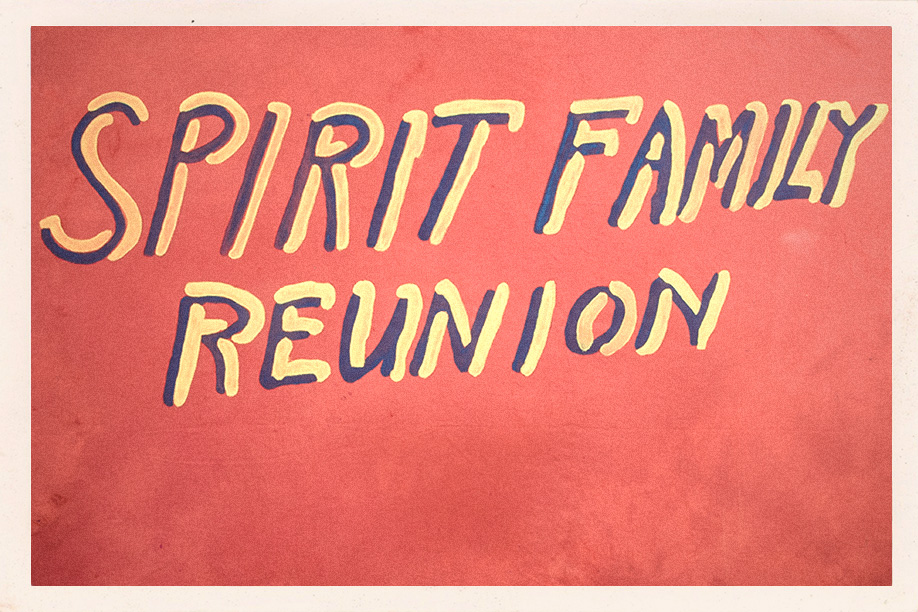 SPIRIT FAMILY
REUNION